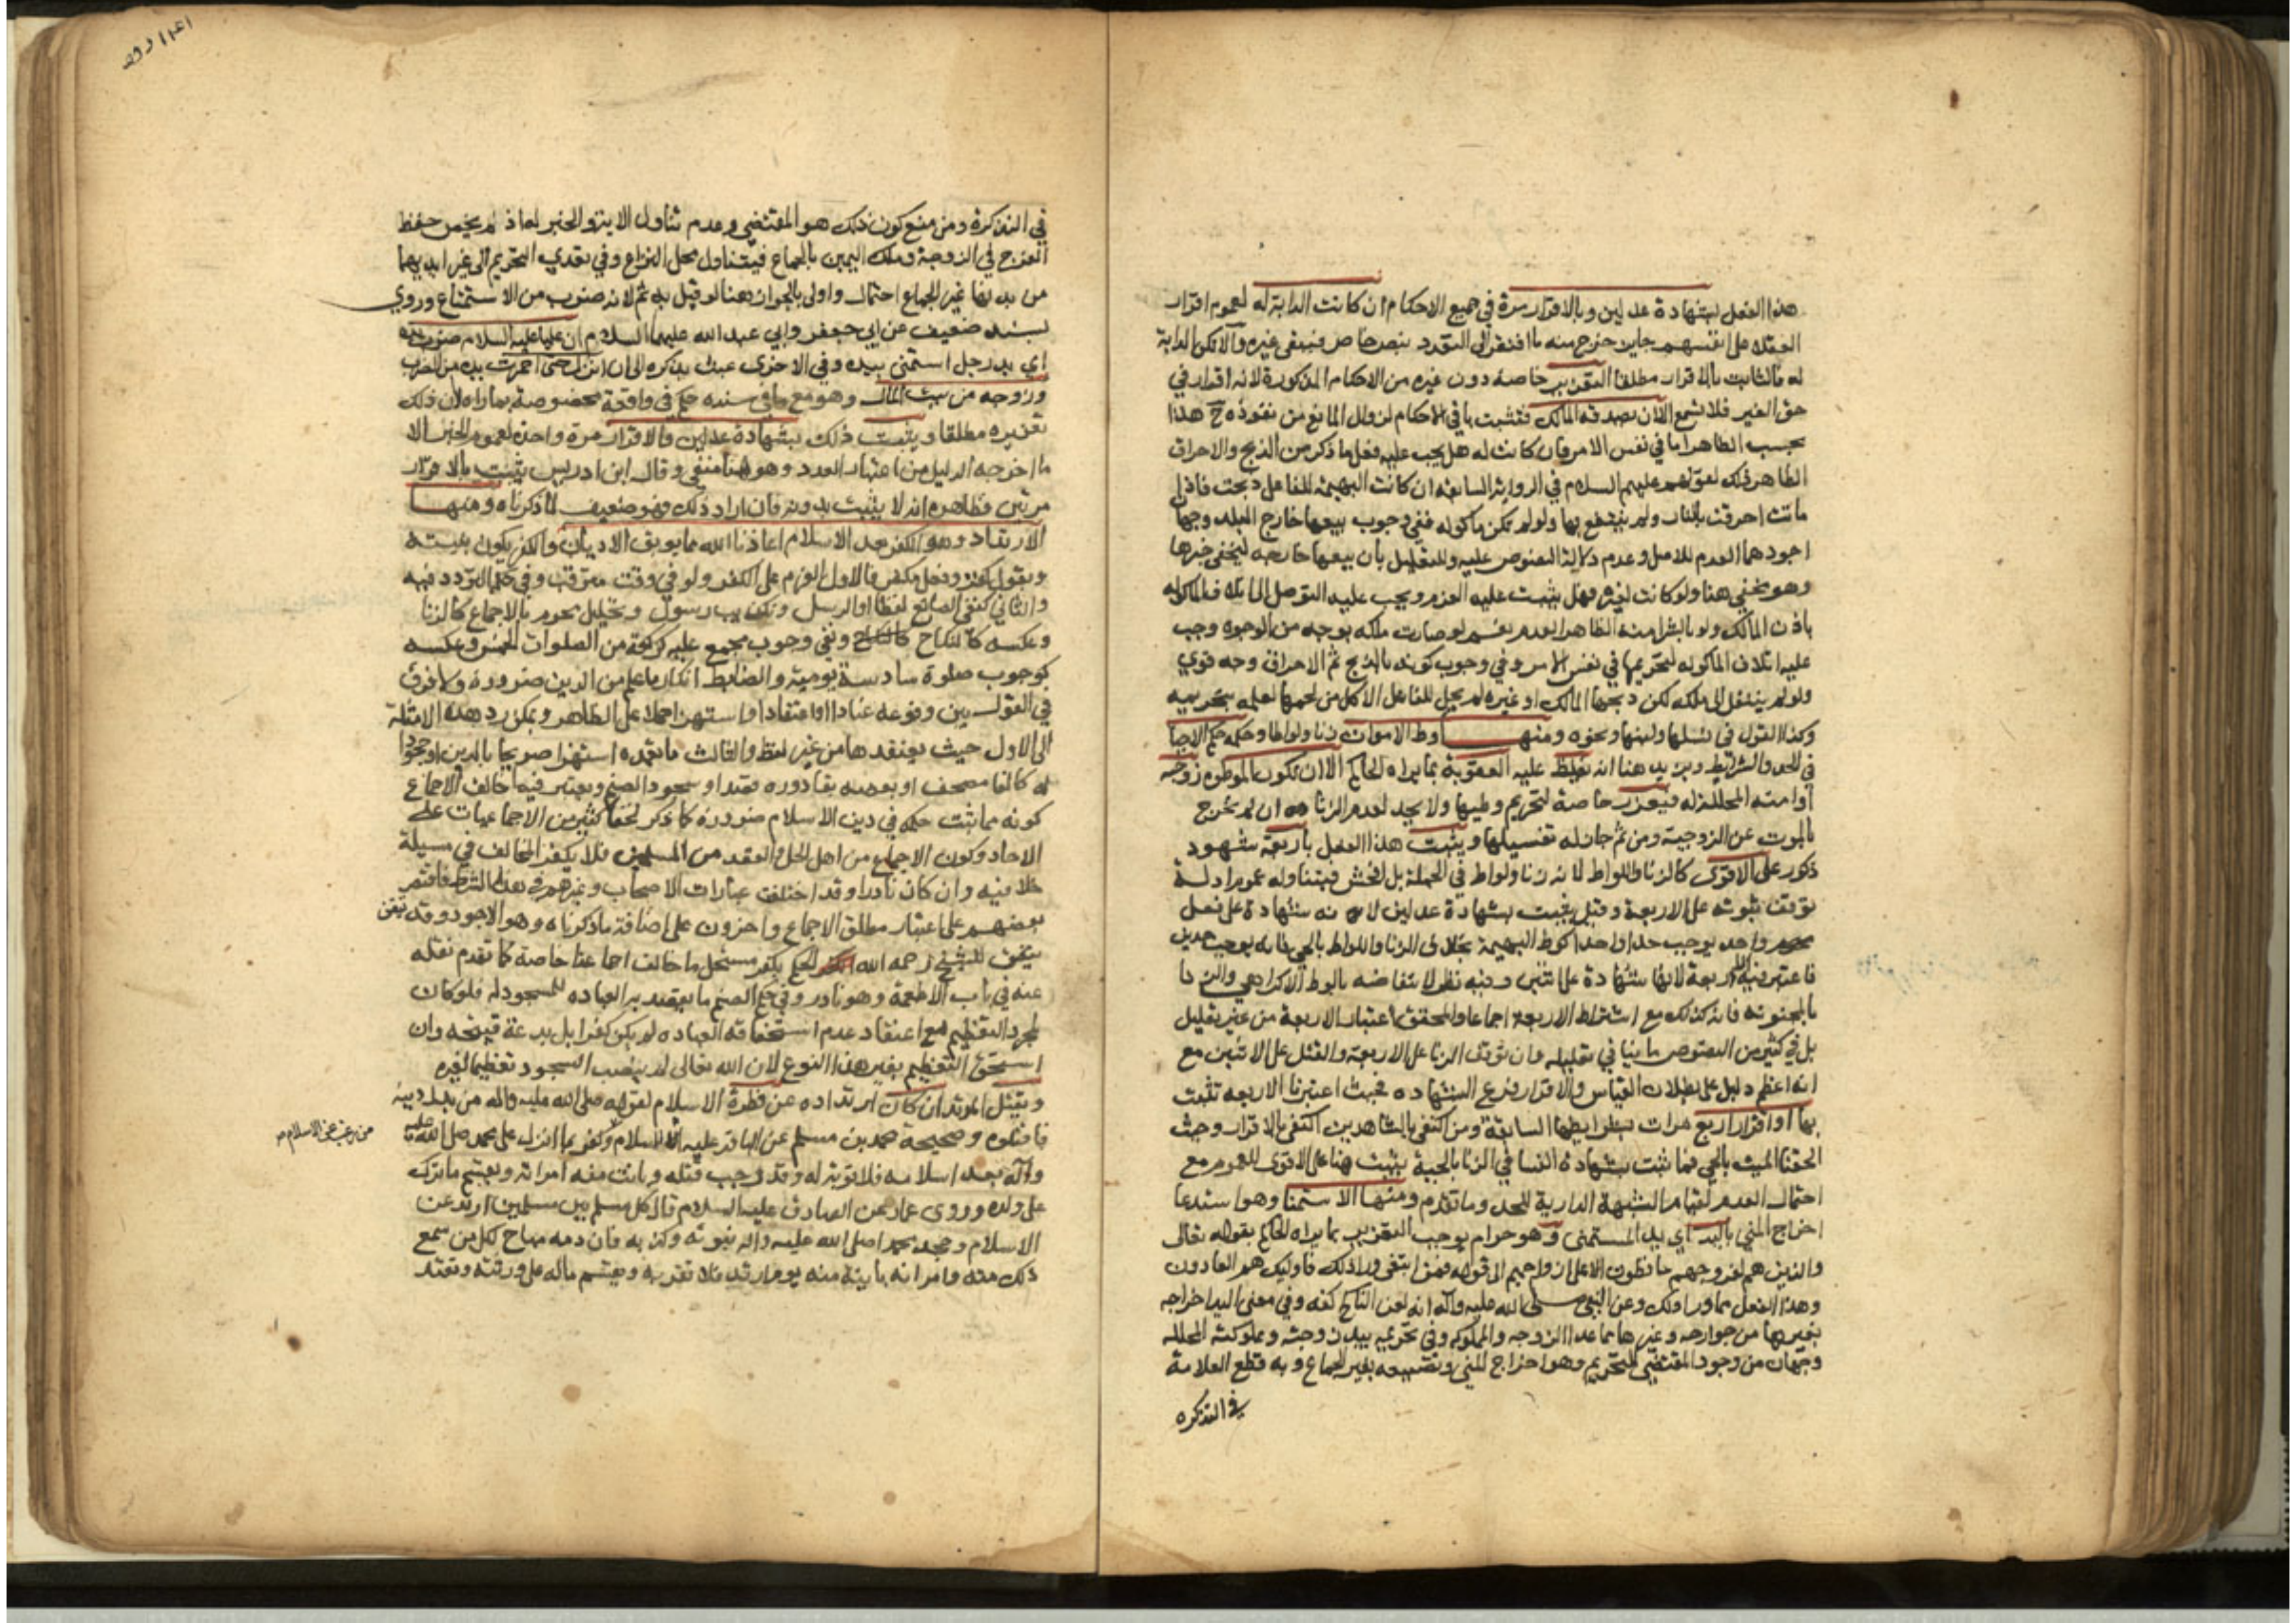 هذا الفعل بشهادة عدلين وبالاقرار مرة في جميع الاحكام ان كانت الدابة له لعموم اقرار
العقلاء على انفسهم جايز خرج منه ما افتقر الى التعدد بنص خاص فيبقى غيره والا تكن الدابة
له فالثابت بالاقرار مطلقا التعزير خاصة دون غيره من الاحكام المذكورة لانه اقرار في
حق الغير فلا يسمع الا ان يصدقه المالك فتثبت باقي الاحكام لزوال المانع من نفوذه ح هذا
بحسب الظاهر اما في نفس الامر فان كانت له هل يجب عليه فعل ما ذكر من الذبح والاحراق
الظاهر ذلك لقولهم عليهم السلام في الرواية السابقة ان كانت البهيمة للفاعل ذبحت فاذا
ماتت احرقت بالنار ولم ينتفع بها ولو لم تكن ماكولة ففي وجوب بيعها خارج البلد وجهان
اجودهما العدم للاصل وعدم دلالة النصوص عليه وللتعليل بان بيعها خارجه ليخفى خبرها
وهو مخفي هنا ولو كانت لغيره فهل يثبت عليه الغرم ويجب عليه التوصل الى اتلاف الماكولة
باذن المالك ولو بالشرا منه الظاهر العدم نعم لو صارت ملكه بوجه من الوجوه وجب
عليه اتلاف الماكولة لتحريمها في نفس الامر وفي وجوب كونه بالذبح ثم الاحراق وجه قوي
ولو لم ينتقل الى ملكه لكن ذبحها المالك او غيره لم يحل للفاعل الاكل من لحمها لعلمه بتحريمه
وكذا القول في نسلها ولبنها ونحوه ومنها وطء الاموات زنا ولواطا وحكمه حكم الاحياء
في الحد والشرائط ويزيد هنا انه تغلظ عليه العقوبة بما يراه الحاكم الا ان تكون الموطوءة زوجته
او امته المحللة له فيعزر خاصة لتحريم وطيها ولا يحد لعدم الزنا ان لم تخرج
بالموت عن الزوجية ومن ثم جاز له تغسيلها ويثبت هذا الفعل باربعة شهود
ذكور على الاقوى كالزنا واللواط لانه زنا ولواط في الجملة بل افحش فيتناوله عموم ادلة
توقف ثبوته على الاربعة وقيل يثبت بشهادة عدلين لانه شهادة على فعل
واحد يوجب حدا واحدا كوطء البهيمة بخلاف الزنا واللواط بالحي فانه يوجب حدين
فاعتبر فيه الاربعة لانها شهادة على اثنين وفيه نظر لانتقاضه بالوطء الاكراهي والزنا
بالمجنونة فانه كذلك مع اشتراط الاربعة اجماعا والمحقق اعتبار الاربعة من غير تعليل
بل في كثير من النصوص ما ينافي تعليله وان توقف الزنا على الاربعة والقتل على الاثنين مع
انه اعظم دليل على بطلان القياس والاقرار فرع الشهادة فحيث اعتبرنا الاربعة تثبت
بها او اقرار اربع مرات بشرايطها السابقة ومن اكتفى بالشاهدين اكتفى بالاقرار وحيث
الحقنا الميت بالحي فما يثبت بشهادة النسا في الزنا بالحية يثبت هنا على الاقوى للعموم مع
احتمال العدم لقيام الشبهة الدارية للحد وما تقدم ومنها الاستمنا وهو استدعا
اخراج المني باليد اي يد المستمني وهو حرام يوجب التعزير بما يراه الحاكم بقوله تعالى
والذين هم لفروجهم حافظون الا على ازواجهم الى قوله فمن ابتغى ورا ذلك فاوليك هم العادون
وهذا الفعل مما ورا ذلك وعن النبي صلى الله عليه وآله انه لعن الناكح كفه وفي معنى اليد اخراجه
بغيرها من جوارحه وغيرها مما عدا الزوجه والمملوكه وفي تحريمه بيد زوجته ومملوكته المحللة
وجهان من وجود المقتضي للتحريم وهو اخراج المني وتضييعه بغير الجماع وبه قطع العلامة
في التذكره
في التذكرة ومن منع كون ذلك هو المقتضي وعدم تناول الاية والخبر له اذ لم يخص حفظ
الفرج في الزوجة وملك اليمين بالجماع فيتناول محل النزاع وفي تعدي التحريم الى غير ايديهما
من بدنها غير الجماع احتمال واولى بالجواز هنا لو قيل به ثم لانه ضرب من الاستمتاع وروي
بسند ضعيف عن ابي جعفر وابي عبد الله عليهما السلام ان عليا عليه السلام ضرب يده
اي يد رجل استمنى بيده وفي الاخرى عبث بذكره الى ان انزل حتى احمرت يده من الضرب
وزوجه من بيت المال وهو مع ما في سنده حكم في واقعة مخصوصة بما راه لا ان ذلك
تعزيره مطلقا ويثبت ذلك بشهادة عدلين والاقرار مرة واحدة لعموم الخبر الا
ما اخرجه الدليل من اعتبار العدد وهو هنا منفي وقال ابن ادريس يثبت بالاقرار
مرتين وظاهره انه لا يثبت بدونه فان اراد ذلك فهو ضعيف لما ذكرناه ومنها
الارتداد وهو الكفر بعد الاسلام اعاذنا الله مما يوبق الاديان والكفر يكون بنية
وبقول كفر وفعل مكفر فالاول العزم على الكفر ولو في وقت مترقب وفي حكمه التردد فيه
والثاني كنفي الصانع لفظا او الرسل وتكذيب رسول وتحليل محرم بالاجماع كالزنا
وعكسه كالنكاح ونفي وجوب مجمع عليه كركعة من الصلوات الخمس وعكسه
كوجوب صلوة سادسة يومية والضابط انكار ما علم من الدين ضرورة ولا فرق
في القول بين وقوعه عنادا او اعتقادا او استهزا حملا على الظاهر ويمكن رد هذه الامثلة
الى الاول حيث يعتقدها من غير لفظ والثالث ما تعمده استهزا صريحا بالدين او جحودا
له كالقا مصحف او بعضه بقاذوره قصدا او سجود الصنم ويعتبر فيما خالف الاجماع
كونه مما ثبت حكمه في دين الاسلام ضرورة كما ذكر لخفا كثير من الاجماعيات على
الاحاد وكون الاجماع من اهل الحل والعقد من المسلمين فلا يكفر المخالف في مسيلة
خلافيه وان كان نادرا وقد اختلفت عبارات الاصحاب وغيرهم في هذا الشرط فاقتصر
بعضهم على اعتبار مطلق الاجماع واخرون على اضافة ما ذكرناه وهو الاجود وقد يتفق
يتفق للشيخ رحمه الله الحكم بكفر مستحل ما خالف اجماعنا خاصة كما تقدم نقله
عنه في باب الاطعمة وهو نادر وفي حكم الصنم ما يقصد به العباده للسجود له فلو كان
لمجرد التعظيم مع اعتقاد عدم استحقاقه العباده لم يكن كفرا بل بدعة قبيحه وان
استحق التعظيم بغير هذا النوع لان الله تعالى لم ينصب السجود تعظيما لغيره
ويقتل المرتد ان كان ارتداده عن فطرة الاسلام لقوله صلى الله عليه واله من بدل دينه
فاقتلوه وصحيحة محمد بن مسلم عن الباقر عليه السلام وكفر بما انزل على محمد صلى الله عليه
من رغب عن الاسلام
وآله بعد اسلامه فلا توبة له وقد وجب قتله وبانت منه امراته ويقسم ما ترك
على ولده وروى عمار عن الصادق عليه السلام قال كل مسلم بين مسلمين ارتد عن
الاسلام وجحد محمدا صلى الله عليه واله نبوته وكذبه فان دمه مباح لكل من سمع
ذلك منه وامراته باينة منه يوم ارتد فلا تقربه ويقسم ماله على ورثته وتعتد